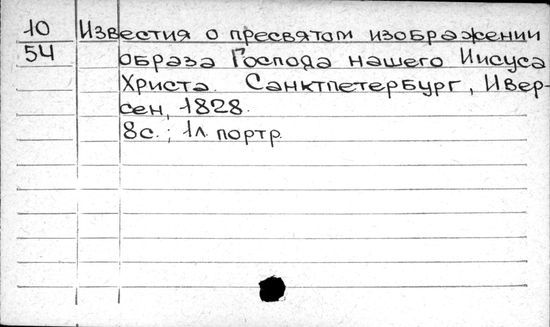 10 Известия о пресвятом изображении
54 образа Господа нашего Иисуса
Христа. Санктпетербург, Ивер-
сен, 1828.
8с.; 1л. портр.